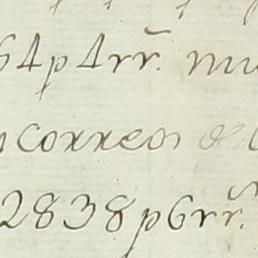 64 p 4 rr.
correos de
2838 p 6 rr.